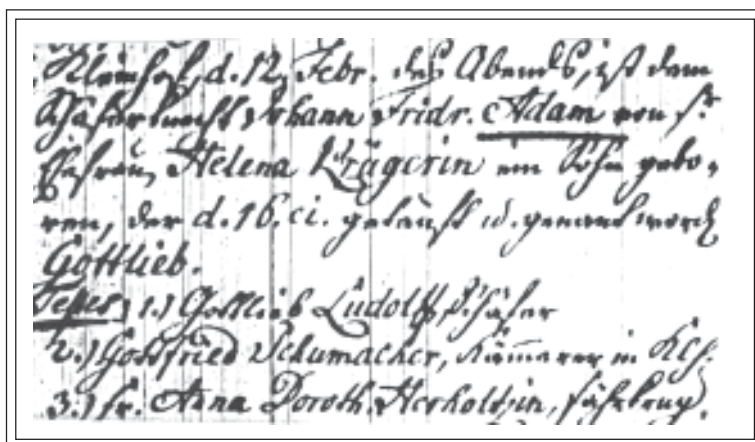 Kleinhof, d. 12. Febr. des Abends, ist dem
Schäferknecht Johann Fridr. Adam von sr.
Ehefrau, Helena Krügerin ein Sohn gebo-
ren, der d. 16. ei. getauft u. genant word
Gottlieb.
Testes 1.) Gottlieb Ludolff, Schäfer
2.) Gottfried Schumacher, Kämmerer in
3.) fr. Anna Doroth. Herholtzin,